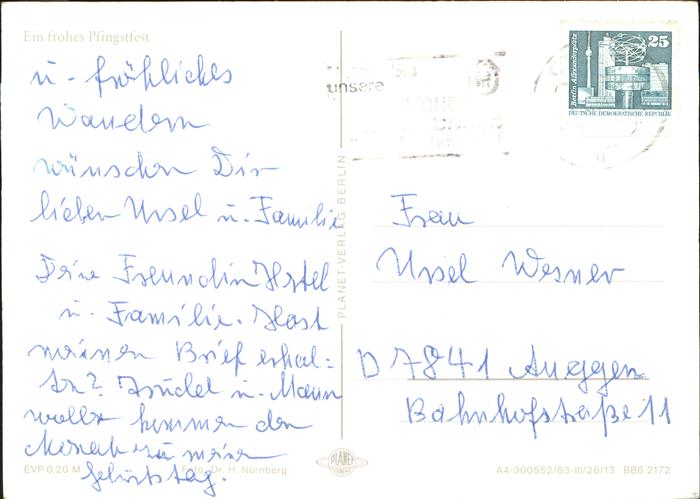 Ein frohes Pfingstfest
u - fröhliches
Wandern
wünschen Dir
liebe Ursel u. Familie
Deine Freundin
u - Familie. Hast
meinen Brief erhal=
ten? Trudel u - Mann
wollen kommen den
Monat zu meinem
Geburtstag.
EVP 0,20 M
Foto: Dr. H. Nürnberg
PLANET-VERLAG BERLIN
PLANET
unsere
25
Berlin Alexanderplatz
DEUTSCHE DEMOKRATISCHE REPUBLIK
Frau
Ursel Wesner
D 7841 Auggen
Bahnhofstraße 11
A4-300552/83-III/26/13 BB6 2172